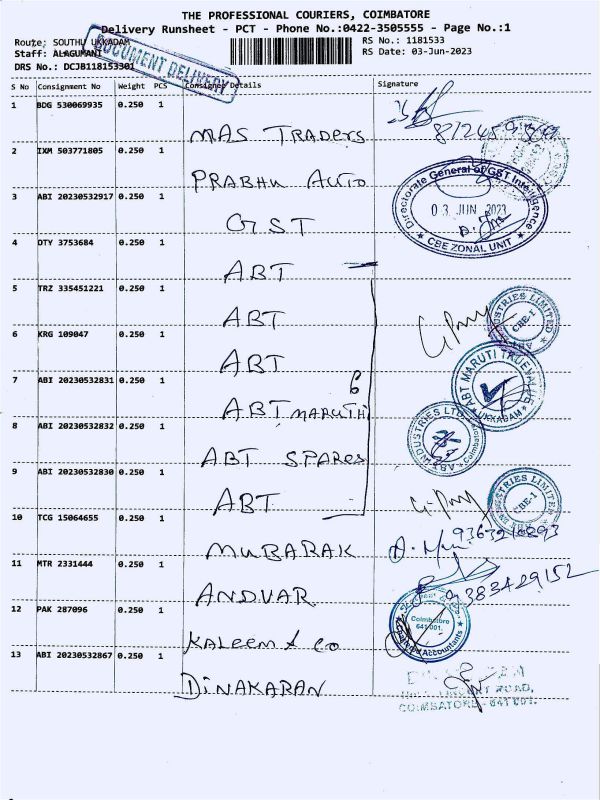 THE PROFESSIONAL COURIERS, COIMBATORE
Delivery Runsheet - PCT - Phone No.:0422-3505555 - Page No.:1
Route: SOUTHU UKKADAM
RS No.: 1181533
Staff: ALAGUMANI
RS Date: 03-Jun-2023
DRS No.: DCJB118153301
DOCUMENT DELIVERY
S No Consignment No Weight PCS Consignee Details Signature
1 BDG 530069935 0.250 1
MAS TRADERS
2 IXM 503771805 0.250 1
PRABHU AUTO
3 ABI 20230532917 0.250 1
GST
Directorate General of GST Intelligence
03 JUN 2023
CBE ZONAL UNIT
4 OTY 3753684 0.250 1
ABT
5 TRZ 335451221 0.250 1
ABT
CBE-1
6 KRG 109047 0.250 1
ABT
7 ABI 20230532831 0.250 1
6
ABT MARUTHI
ABT MARUTI TRUE VALUE
UKKADAM
8 ABI 20230532832 0.250 1
ABT SPARES
ABT INDUSTRIES LTD
9 ABI 20230532830 0.250 1
ABT
INDUSTRIES LIMITED
CBE-1
10 TCG 15064655 0.250 1
MUBARAK
11 MTR 2331444 0.250 1
ANDVAR
9383429152
12 PAK 287096 0.250 1
KALEEM & CO
Coimbatore
641 001.
Chartered Accountants
13 ABI 20230532867 0.250 1
DINAKARAN
ROAD,
COIMBATORE - 641 001.